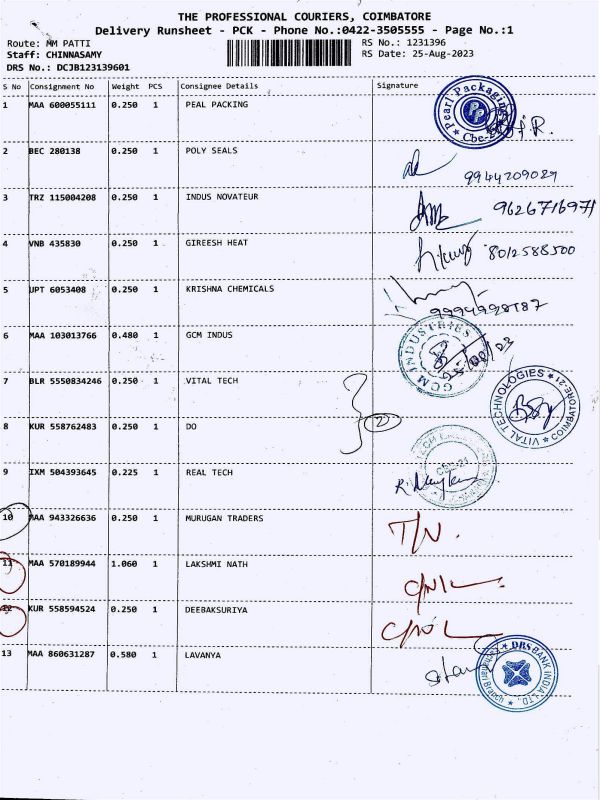 THE PROFESSIONAL COURIERS, COIMBATORE
Delivery Runsheet - PCK - Phone No.:0422-3505555 - Page No.:1
Route: MM PATTI RS No.: 1231396
Staff: CHINNASAMY RS Date: 25-Aug-2023
DRS No.: DCJB123139601
S No Consignment No Weight PCS Consignee Details Signature
1 MAA 600055111 0.250 1 PEAL PACKING
Pearl Packaging
PP
Cbe-21
2 BEC 280138 0.250 1 POLY SEALS
9944209029
3 TRZ 115004208 0.250 1 INDUS NOVATEUR
9626716971
4 VNB 435830 0.250 1 GIREESH HEAT
8012588500
5 UPT 6053408 0.250 1 KRISHNA CHEMICALS
6 MAA 103013766 0.480 1 GCM INDUS
GCM INDUSTRIES
7 BLR 5550834246 0.250 1 VITAL TECH
VITAL TECHNOLOGIES
COIMBATORE-21
8 KUR 558762483 0.250 1 DO
2
9 IXM 504393645 0.225 1 REAL TECH
CBE-21
10 MAA 943326636 0.250 1 MURUGAN TRADERS
T/N.
11 MAA 570189944 1.060 1 LAKSHMI NATH
12 KUR 558594524 0.250 1 DEEBAKSURIYA
13 MAA 860631287 0.580 1 LAVANYA
DBS BANK INDIA LTD.
Branch